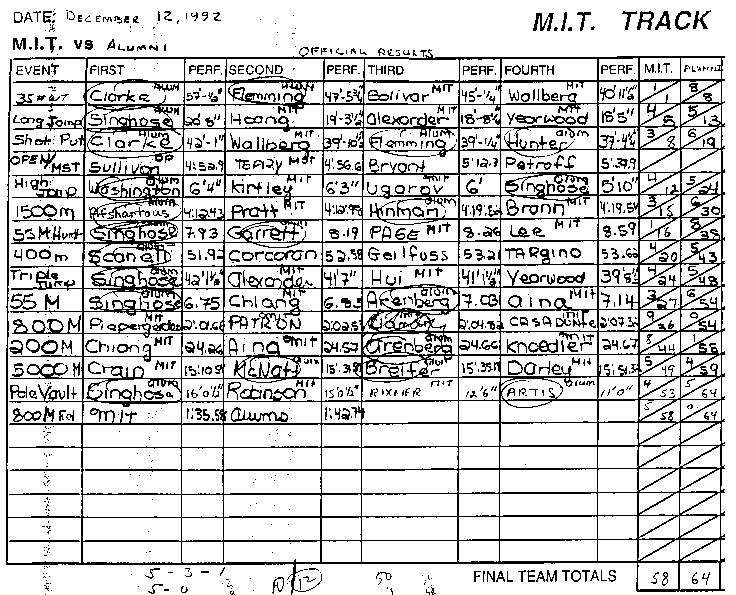 DATE: DECEMBER 12, 1992
M.I.T. TRACK
M.I.T. vs ALUMNI
OFFICIAL RESULTS
EVENT FIRST PERF. SECOND PERF. THIRD PERF. FOURTH PERF. M.I.T. ALUMNI
35# WT Clarke Alum Flemming Alum Bolivar MIT 45-¼" Wallberg MIT 1 8
Long Jump Singhose Hoang MIT Alexander MIT 18-8¼ Yearwood MIT 18'5" 4 5 5 13
Shot Put Clarke Alum 42'-1" Wallberg MIT Flemming Alum 39'-1¼" Hunter Alum 3 8 6 19
OPEN MST Sullivan OP 4:52.9 TEPLY MIT 4:56.6 Bryant 5:12.7 Petroff 5:37.9
High Jump Washington Alum 6'4" Kirtley MIT 6'3" Ugarov MIT 6' Singhose Alum 5'10" 4 12 5 24
1500m 4:12.43 Pratt MIT Hinman Alum Bronn MIT 3 15 6 30
55M Hurd Singhose Alum 7.93 Garrett Alum 8.19 PAGE MIT 8.26 Lee MIT 8.59 1 16 8 38
400m Scanell Alum 51.92 Corcoran MIT 52.58 Geilfuss MIT 53.21 TARgino MIT 53.62 4 20 5 43
Triple Jump Singhose Alum 42'1½" Alexander MIT 41'7" Hui MIT 41'1½" Yearwood MIT 4 24 5 48
55 M Singhose Alum 6.75 Chiang MIT 6.85 Arenberg Alum 7.03 Aina MIT 7.14 3 27 6 54
800M MIT PATRON MIT MIT 9 36 0 54
200M Chiang MIT 24.26 Aina MIT 24.57 Arenberg Alum 24.66 Knoedler MIT 24.67 8 44 1 55
5000M Crain MIT McNatt Alum Breiter Alum Darley MIT 5 49 4 59
Pole Vault Singhose Alum 16'0½" Robinson MIT 15'0½" RIXNER MIT 12'6" ARTIS Alum 11'0" 4 53 5 64
800M Rel MIT 1:35.58 Alums 1:42.74 5 58 0 64
5-3-1
5-0
12
FINAL TEAM TOTALS 58 64